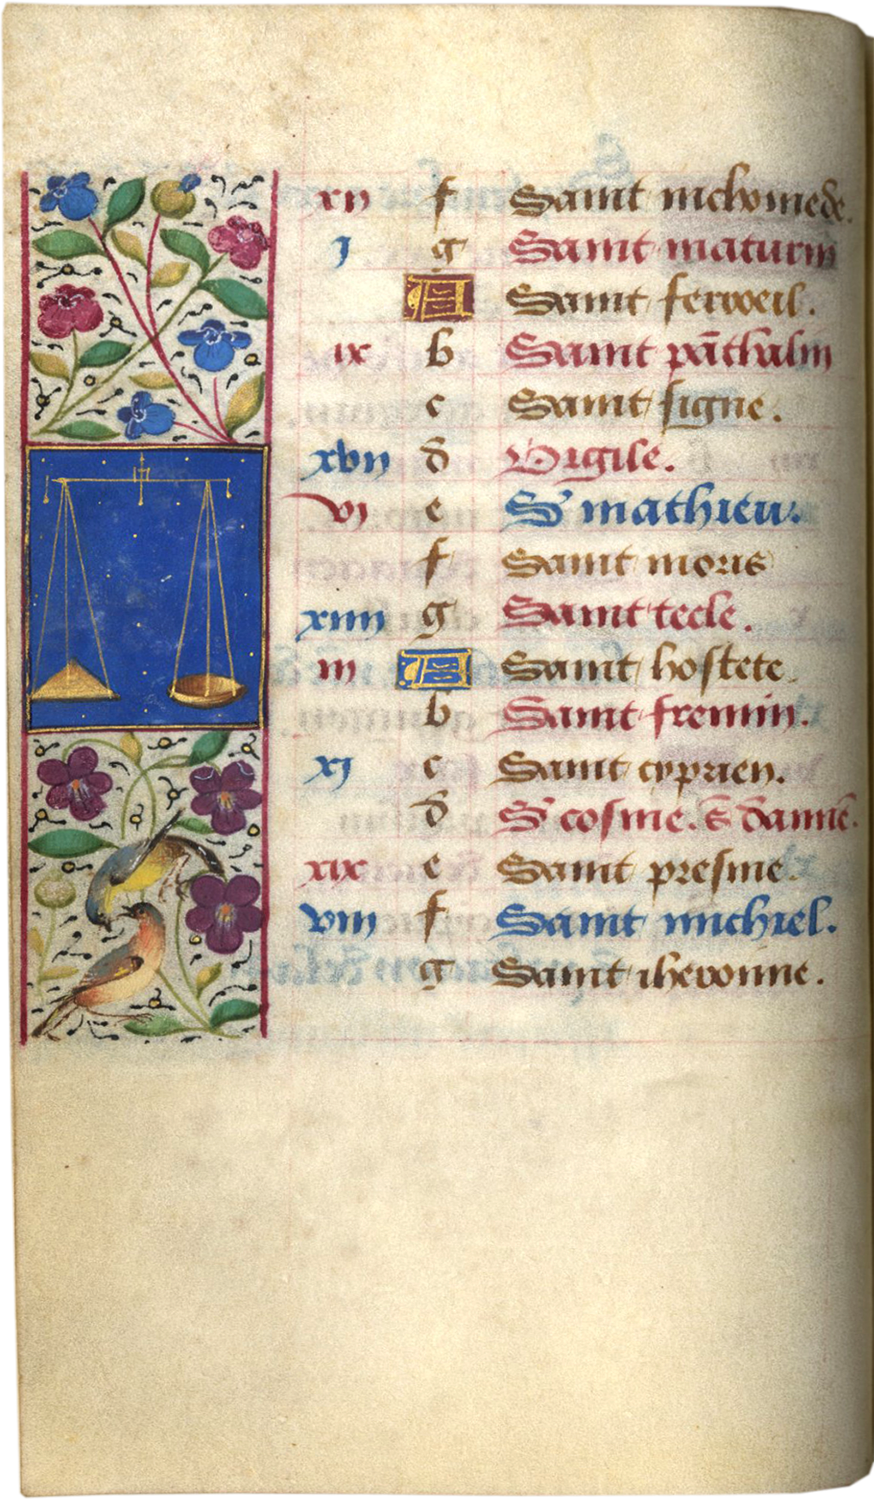 xii f Saint nichomede.
i g Saint maturin
A Saint ferroeil.
ix b Saint pāthalin
c Saint signe.
xvii d Virgile.
vi e S mathieu.
f Saint moris
xiiii g Saint tecle.
iii A Saint hostete.
b Saint fremin.
xi c Saint cyprien.
d S cosme. s damiē.
xix e Saint presme.
viii f Saint michiel.
g Saint iheronne.